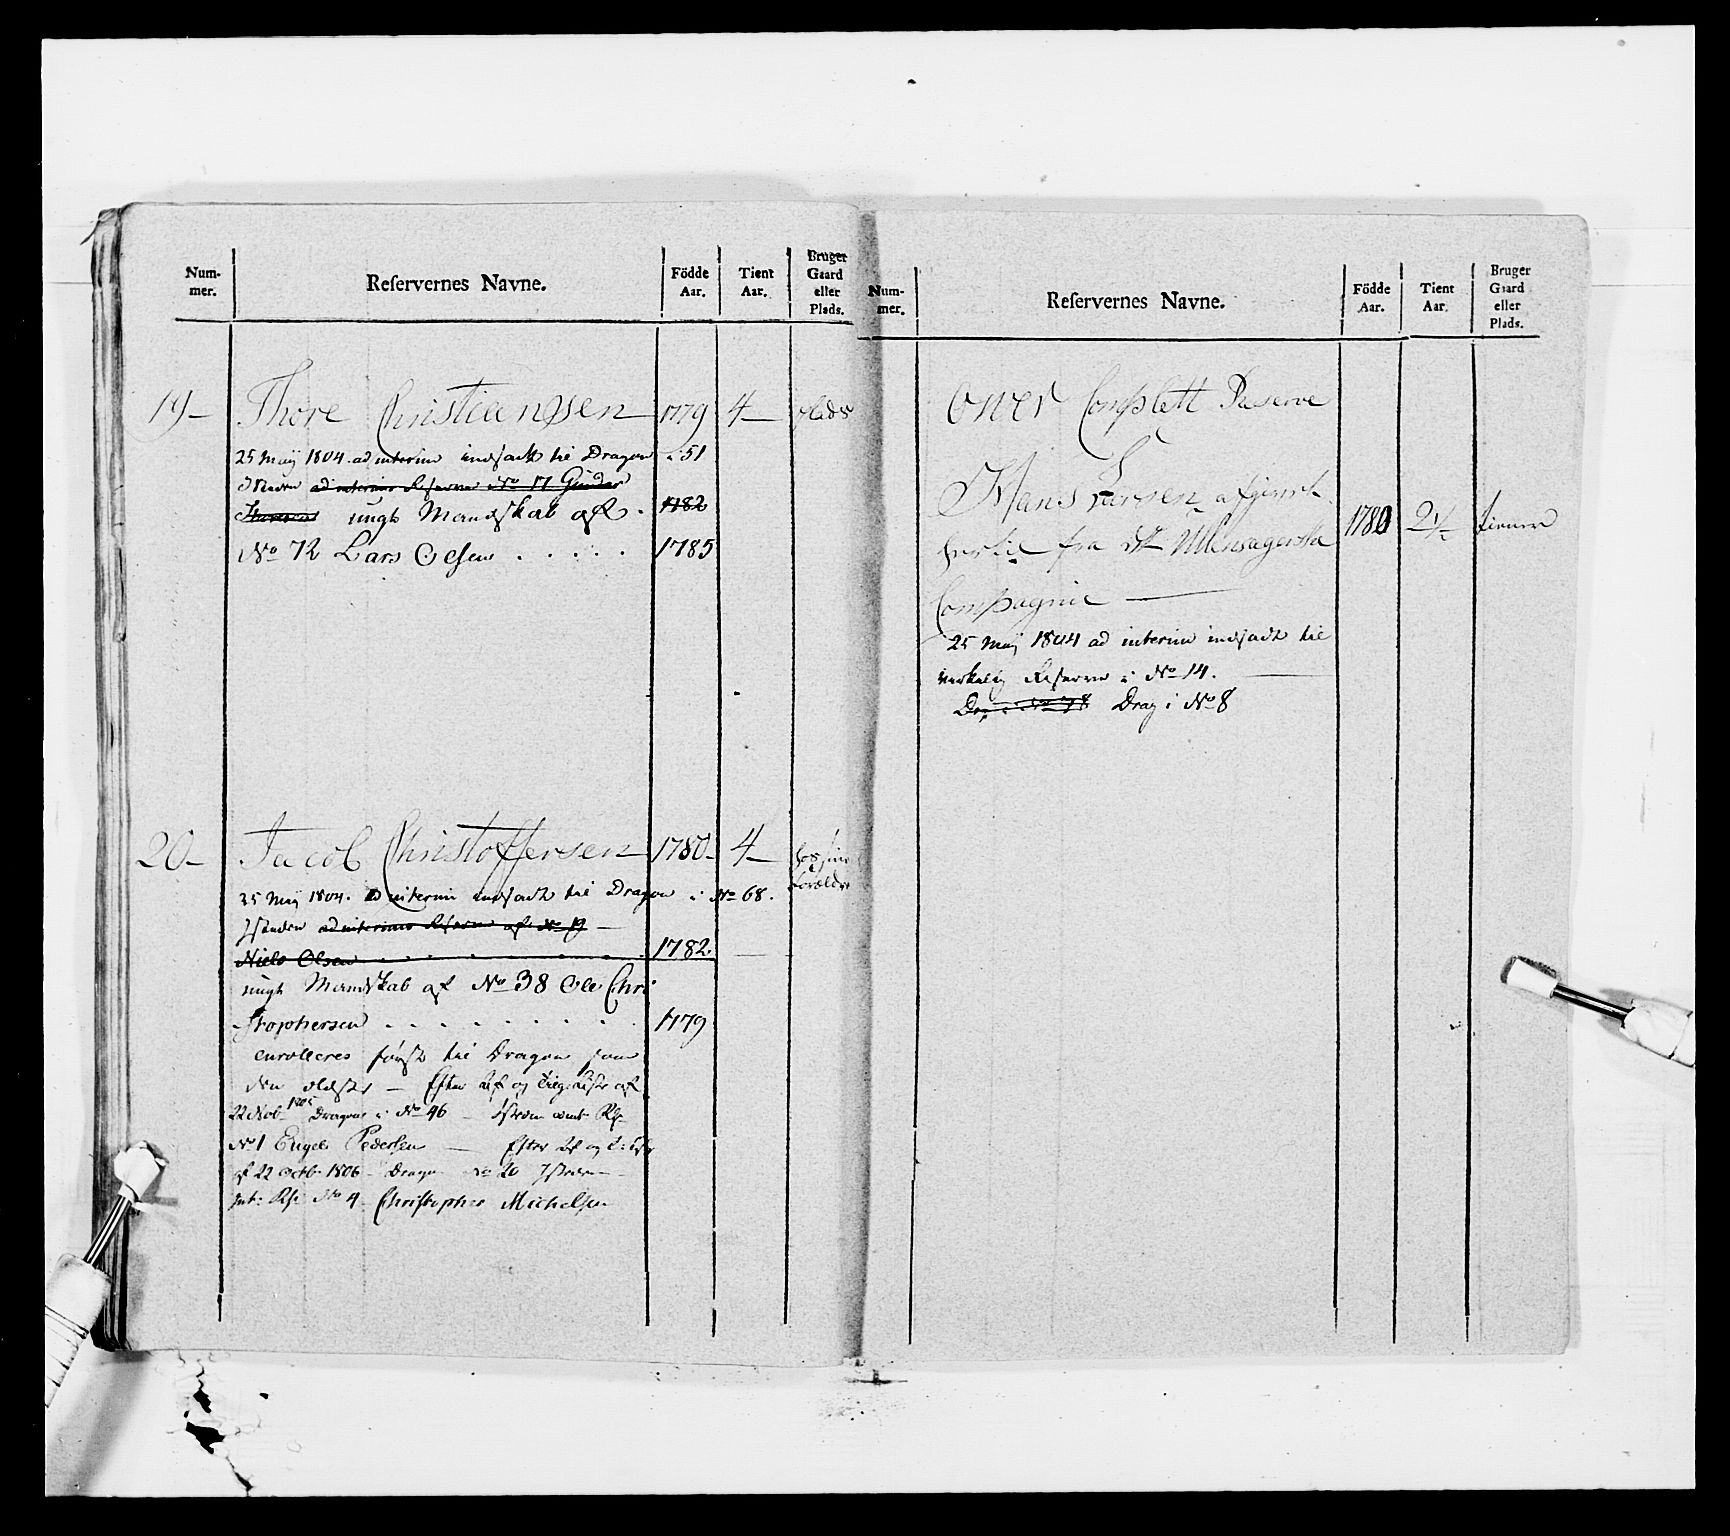 Num-
mer.
Reservernes Navne.
Födde
Aar.
Tient
Aar.
Bruger
Gaard
eller
Plads.
19- Thore Christiansen 1779 4- plads
25 Maij 1804. ad interim indsadt til Dragon i 51
Isteden ad interims Reserve No 17 Gunder
ungt Mandskab af 1782
No 72 Lars Olsen . . . . . 1785
20- Jacob Christoffersen 1780- 4- hos sine Forældre
25 Maij 1804. ad interim indsadt til Dragon i No 68.
Isteden ad interims Reserve af No 19 -
Niels Olsen 1782
ungt Mandskab af No 38 Ole Chri
stophersen . . . . . . . . 1779
enrolleres først til Dragon som
den eldste - Efter af
22 Nob 1805 Dragon i No 46 - Isteden
No 1 Engebr Pedersen - Efter
af 22 octb. 1806 - Dragon No 20 Isteden
Int: Rs: No 4. Christopher Michelsen
Num-
mer.
Reservernes Navne.
Födde
Aar.
Tient
Aar.
Bruger
Gaard
eller
Plads.
Over Complett Reserve
Hans Larsen afgivet 1780 2½ tiener
hertil fra dt Ullensagerske
Compagnie -
25 Maij 1804 ad interim indsadt til
virkelig Reserve i No 14.
Drag i No 78 Drag i No 8